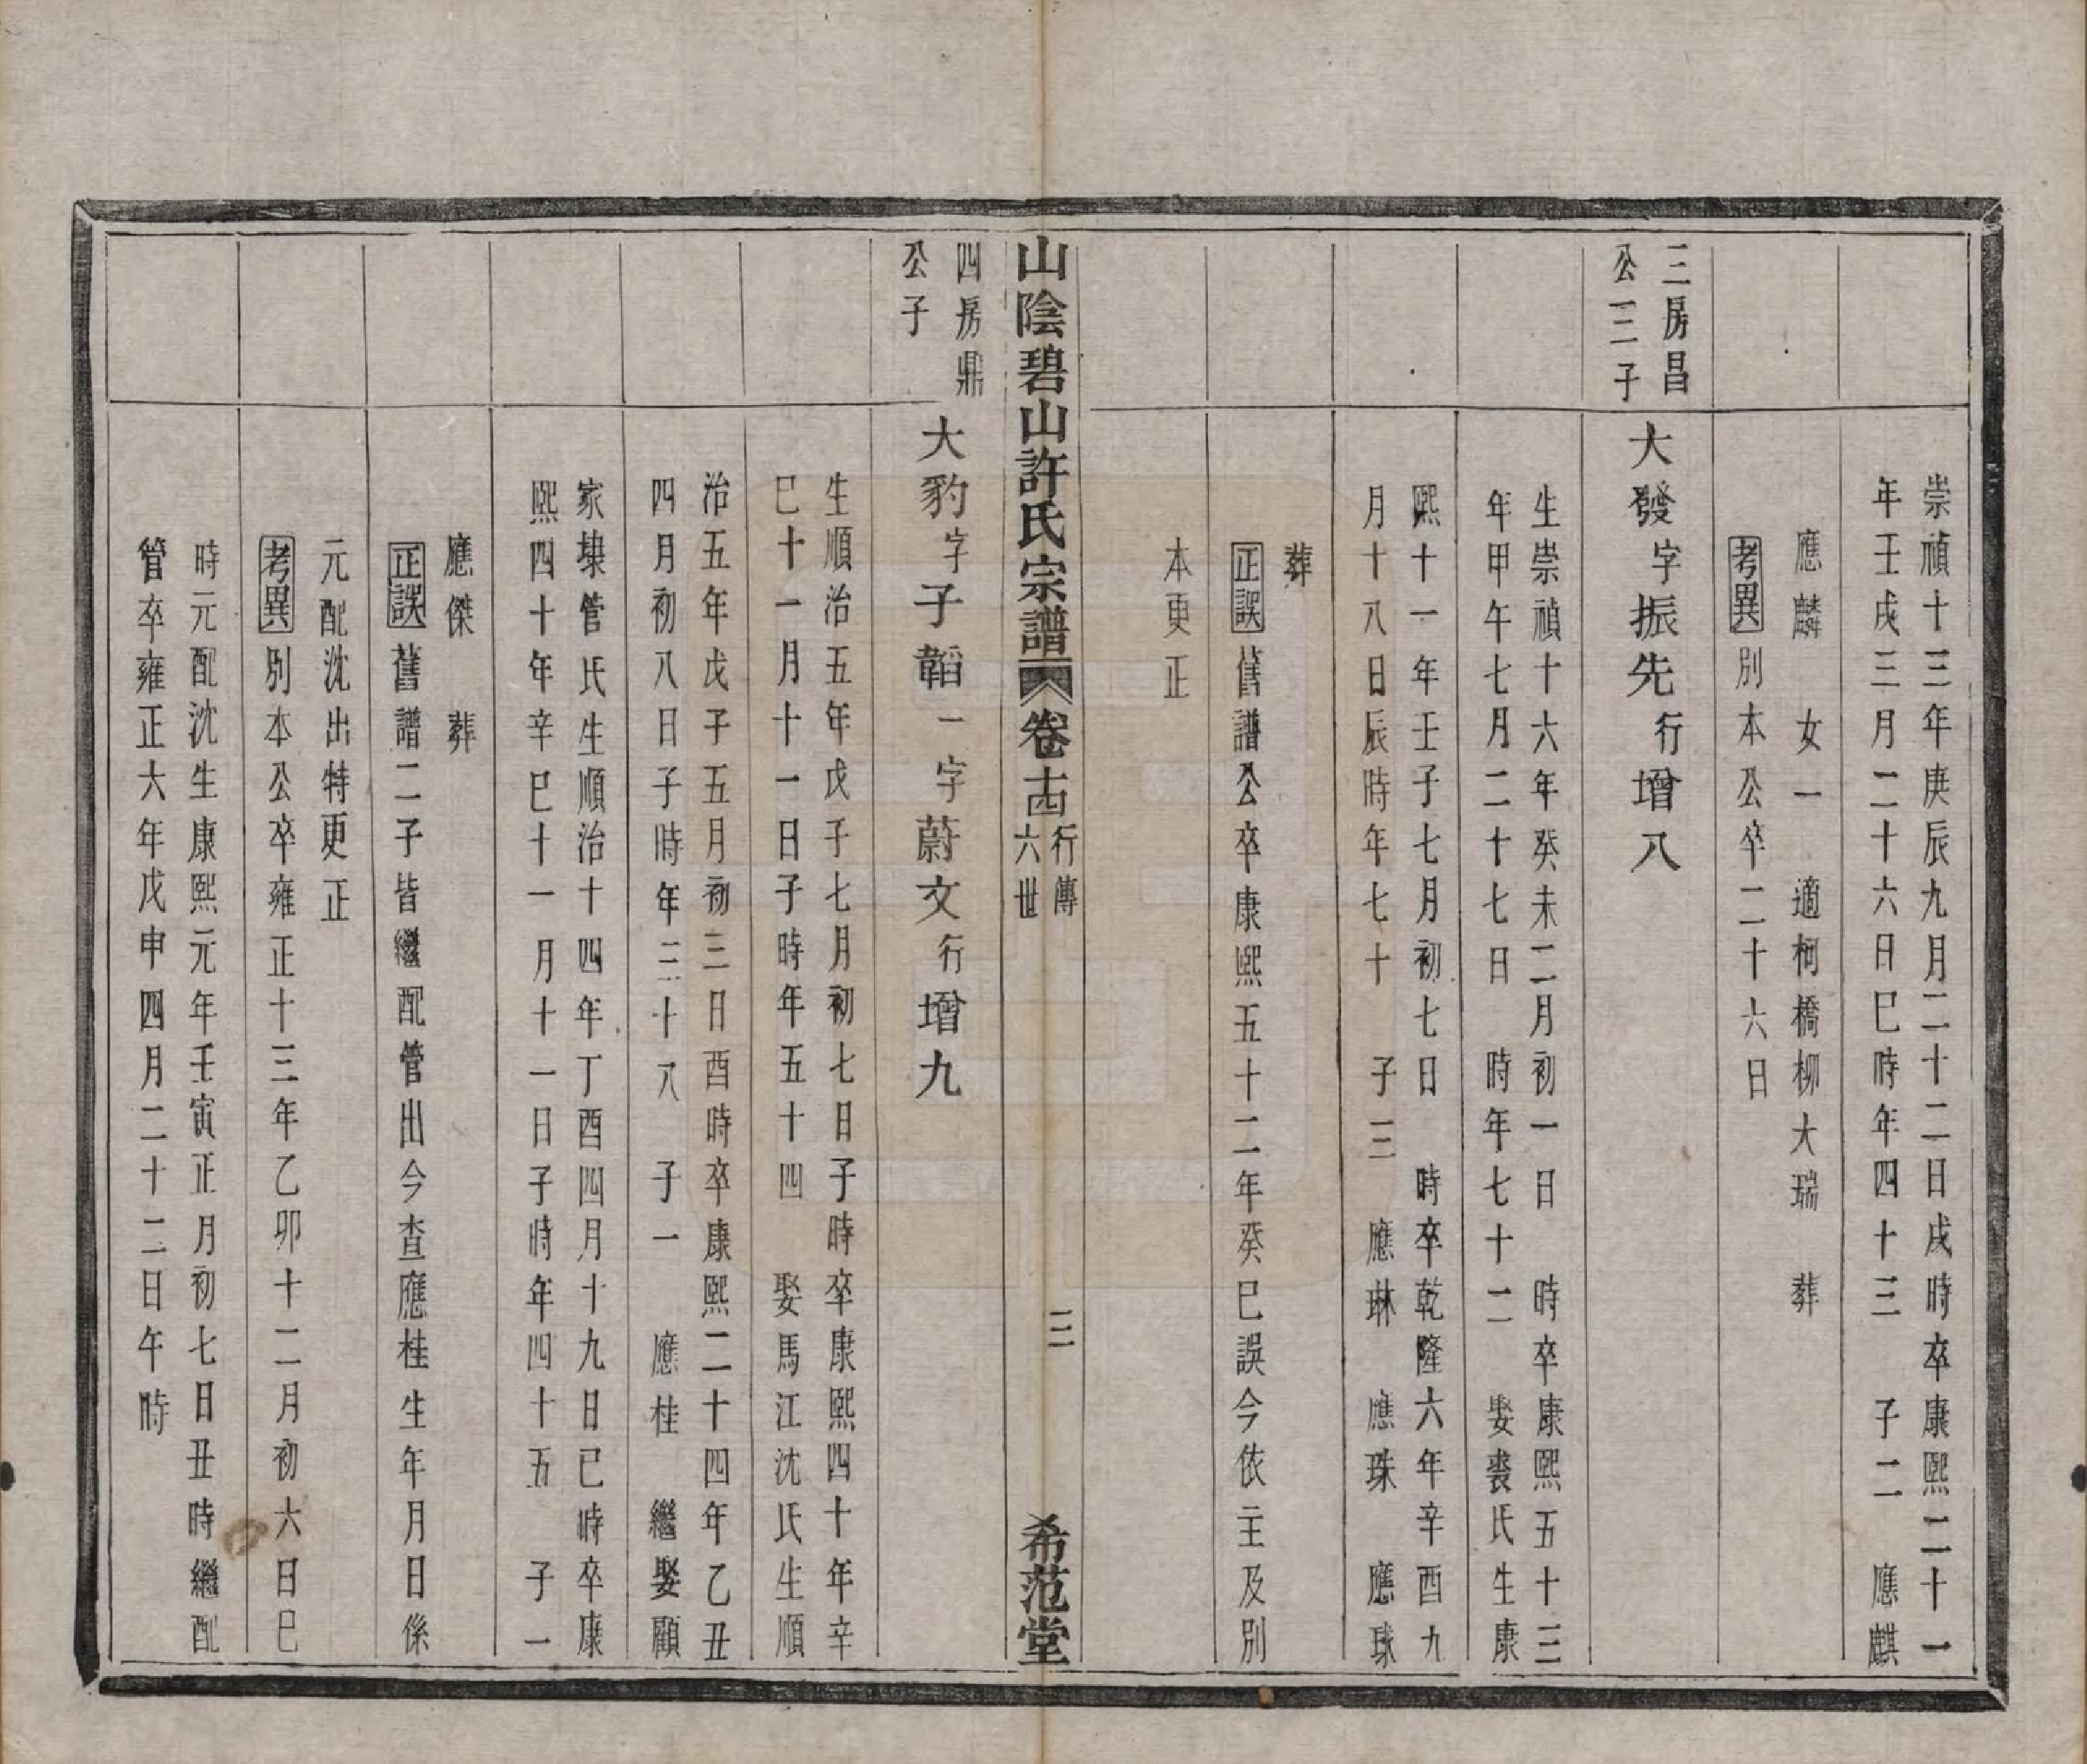 崇禎十三年庚辰九月二十二日戌時卒康熙二十一
年壬戌三月二十六日巳時年四十三 子二 應麒
應麟 女一 適柯橋柳大瑞 葬
考異別本公卒二十六日
三房昌
公三子
大發字振先行增八
生崇禎十六年癸未二月初一日 時卒康熙五十三
年甲午七月二十七日 時年七十二 娶裘氏生康
熙十一年壬子七月初七日 時卒乾隆六年辛酉九
月十八日辰時年七十 子三 應琳 應珠 應球
葬
正誤舊譜公卒康熙五十二年癸巳誤今依主及別
本更正
山陰碧山許氏宗譜 卷十四 行傳 六世 三 希范堂
四房鼎
公子
大豹字子韜一字蔚文行增九
生順治五年戊子七月初七日子時卒康熙四十年辛
巳十一月十一日子時年五十四 娶馬江沈氏生順
治五年戊子五月初三日酉時卒康熙二十四年乙丑
四月初八日子時年三十八 子一 應桂 繼娶顧
家埭管氏生順治十四年丁酉四月十九日巳時卒康
熙四十年辛巳十一月十一日子時年四十五 子一
應傑 葬
正誤舊譜二子皆繼配管出今查應桂生年月日係
元配沈出特更正
考異別本公卒雍正十三年乙卯十二月初六日巳
時元配沈生康熙元年壬寅正月初七日丑時繼配
管卒雍正六年戊申四月二十二日午時